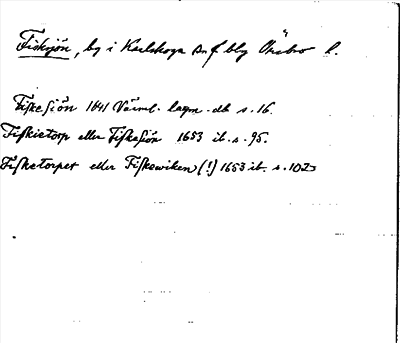 Fisksjön, by i Karlskoga sn f. bbg Örebro l.
Fiskesiön 1641 Värml. lagm. db s. 16.
Fiskietorp eller Fiskesiön 1653 ib. s. 95.
Fisketorpet eller Fiskewiken (!) 1653 ib. s. 102